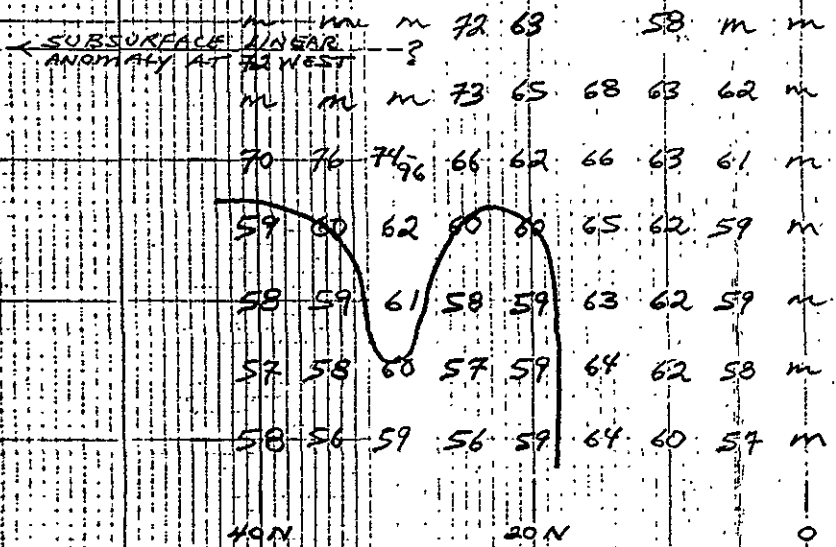 m mu m 72 63 58 m m
SUBSURFACE LINEAR ?
ANOMALY AT 72 WEST
m m m 73 65 68 63 62 m
70 76 74-96 66 62 66 63 61 m
59 60 62 60 60 65 62 59 m
58 59 61 58 59 63 62 59 m
57 58 60 57 59 64 62 58 m
58 56 59 56 59 64 60 57 m
40N 20N 0